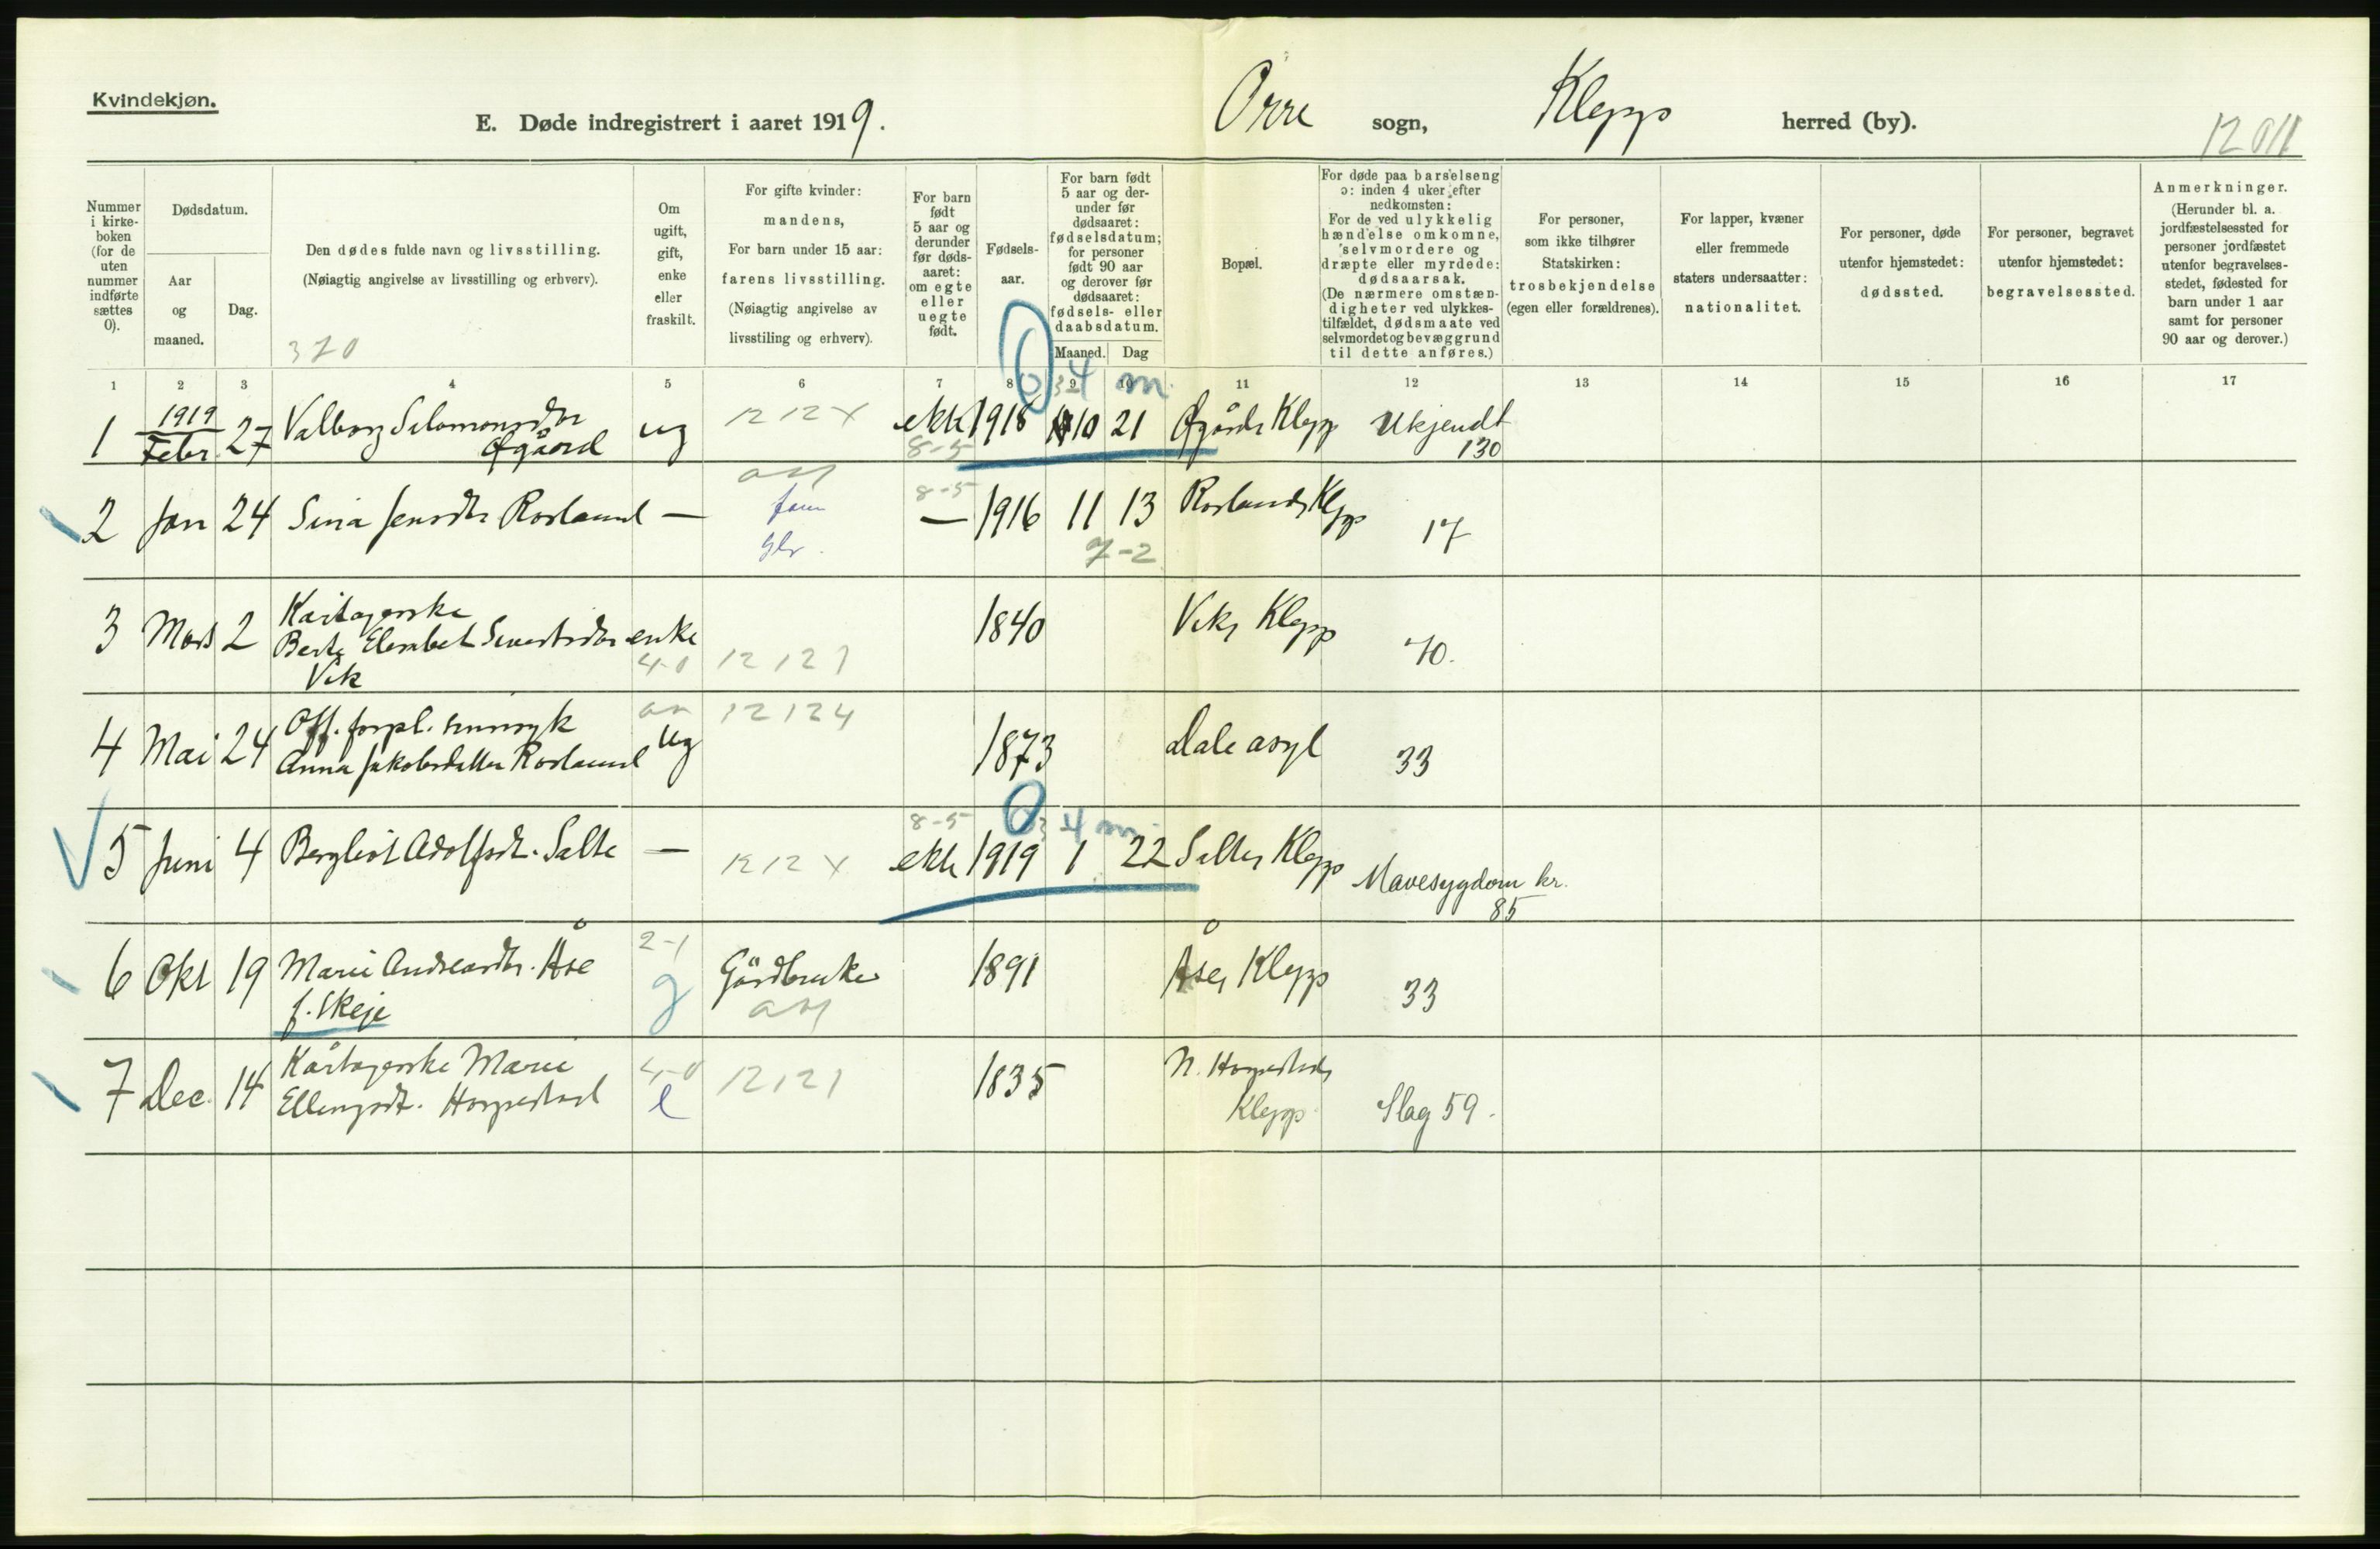 Kvindekjøn.
E. Døde indregistrert i aaret 1919.
Orre sogn, Klepp herred (by).
12011
Nummer i kirke-boken (for de uten nummer indførte sættes 0).
Dødsdatum.
Aar og maaned.
Dag.
Den dødes fulde navn og livsstilling.
(Nøiagtig angivelse av livsstilling og erhverv).
370
Om ugift, gift, enke eller fraskilt.
For gifte kvinder: mandens,
For barn under 15 aar: farens livsstilling.
(Nøiagtig angivelse av livsstiling og erhverv).
For barn født 5 aar og derunder før døds-aaret: om egte eller uegte født.
Fødsels-aar.
For barn født 5 aar og der-under før dødsaaret: fødselsdatum; for personer født 90 aar og derover før dødsaaret: fødsels- eller daabsdatum.
Maaned. Dag
Bopæl.
For døde paa barselseng ɔ: inden 4 uker efter nedkomsten:
For de ved ulykkelig hændelse omkomne, selvmordere og dræpte eller myrdede: dødsaarsak.
(De nærmere omstæn-digheter ved ulykkes-tilfældet, dødsmaate ved selvmordet og bevæggrund til dette anføres.)
For personer, som ikke tilhører Statskirken: trosbekjendelse (egen eller forældrenes).
For lapper, kvæner eller fremmede staters undersaatter: nationalitet.
For personer, døde utenfor hjemstedet: dødssted.
For personer, begravet utenfor hjemstedet: begravelsessted.
Anmerkninger.
(Herunder bl. a. jordfæstelsessted for personer jordfæstet utenfor begravelses-stedet, fødested for barn under 1 aar samt for personer 90 aar og derover.)
1 2 3 4 5 6 7 8 9 10 11 12 13 14 15 16 17
0 4 m.
1 1919 Febr 27 Valborg Salomonsdtr Øgård ug 12 12 X ekte 8-5 1918 10 21 Øgård, Klepp Ukjendt 130
2 Jan 24 Sina Jensdtr Rosland — 8-5 — 1916 11 13 7-2 Rosland, Klepp 17
3 Mars 2 Kårtagerske Berte Elisabet Sivertsdtr Vik enke 4-0 12 121 1840 Vik, Klepp 70.
4 Mai 24 Off. forpl. sinnsyk Anna Jakobsdatter Rosland ug 12 124 1873 Dale asyl 33
0 4 m.
5 Juni 4 Bergliot Adolfsdt. Salte — 12 12 X 8-5 ekte 1919 1 22 Salte, Klepp Mavesygdom kr. 85
6 Okt 19 Marie Andreasdtr. Åse f. Skeje 2-1 g Gårdbruker 1891 Åse, Klepp 33
7 Dec. 14 Kårtagerske Marie Ellingsdt. Horpestad 4-0 e 12 121 1835 N. Horpestad, Klepp Slag 59.